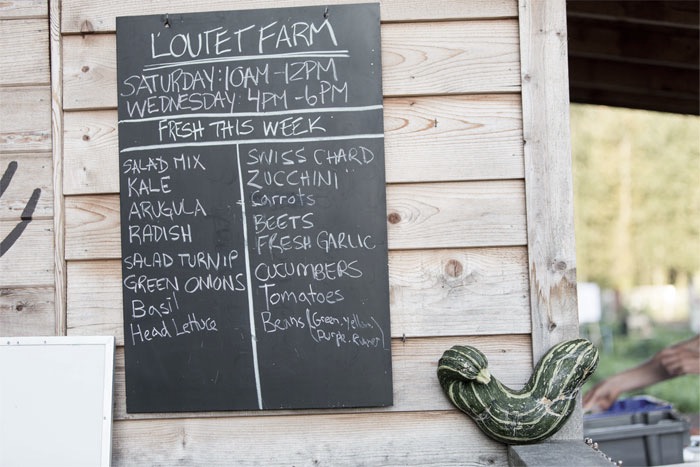 LOUTET FARM
SATURDAY: 10AM-12PM
WEDNESDAY: 4PM-6PM
FRESH THIS WEEK
SALAD MIX
KALE
ARUGULA
RADISH
SALAD TURNIP
GREEN ONIONS
Basil
Head Lettuce
SWISS CHARD
ZUCCHINI
Carrots
BEETS
FRESH GARLIC
CUCUMBERS
Tomatoes
Beans (Green, yellow,
Purple, Runner)